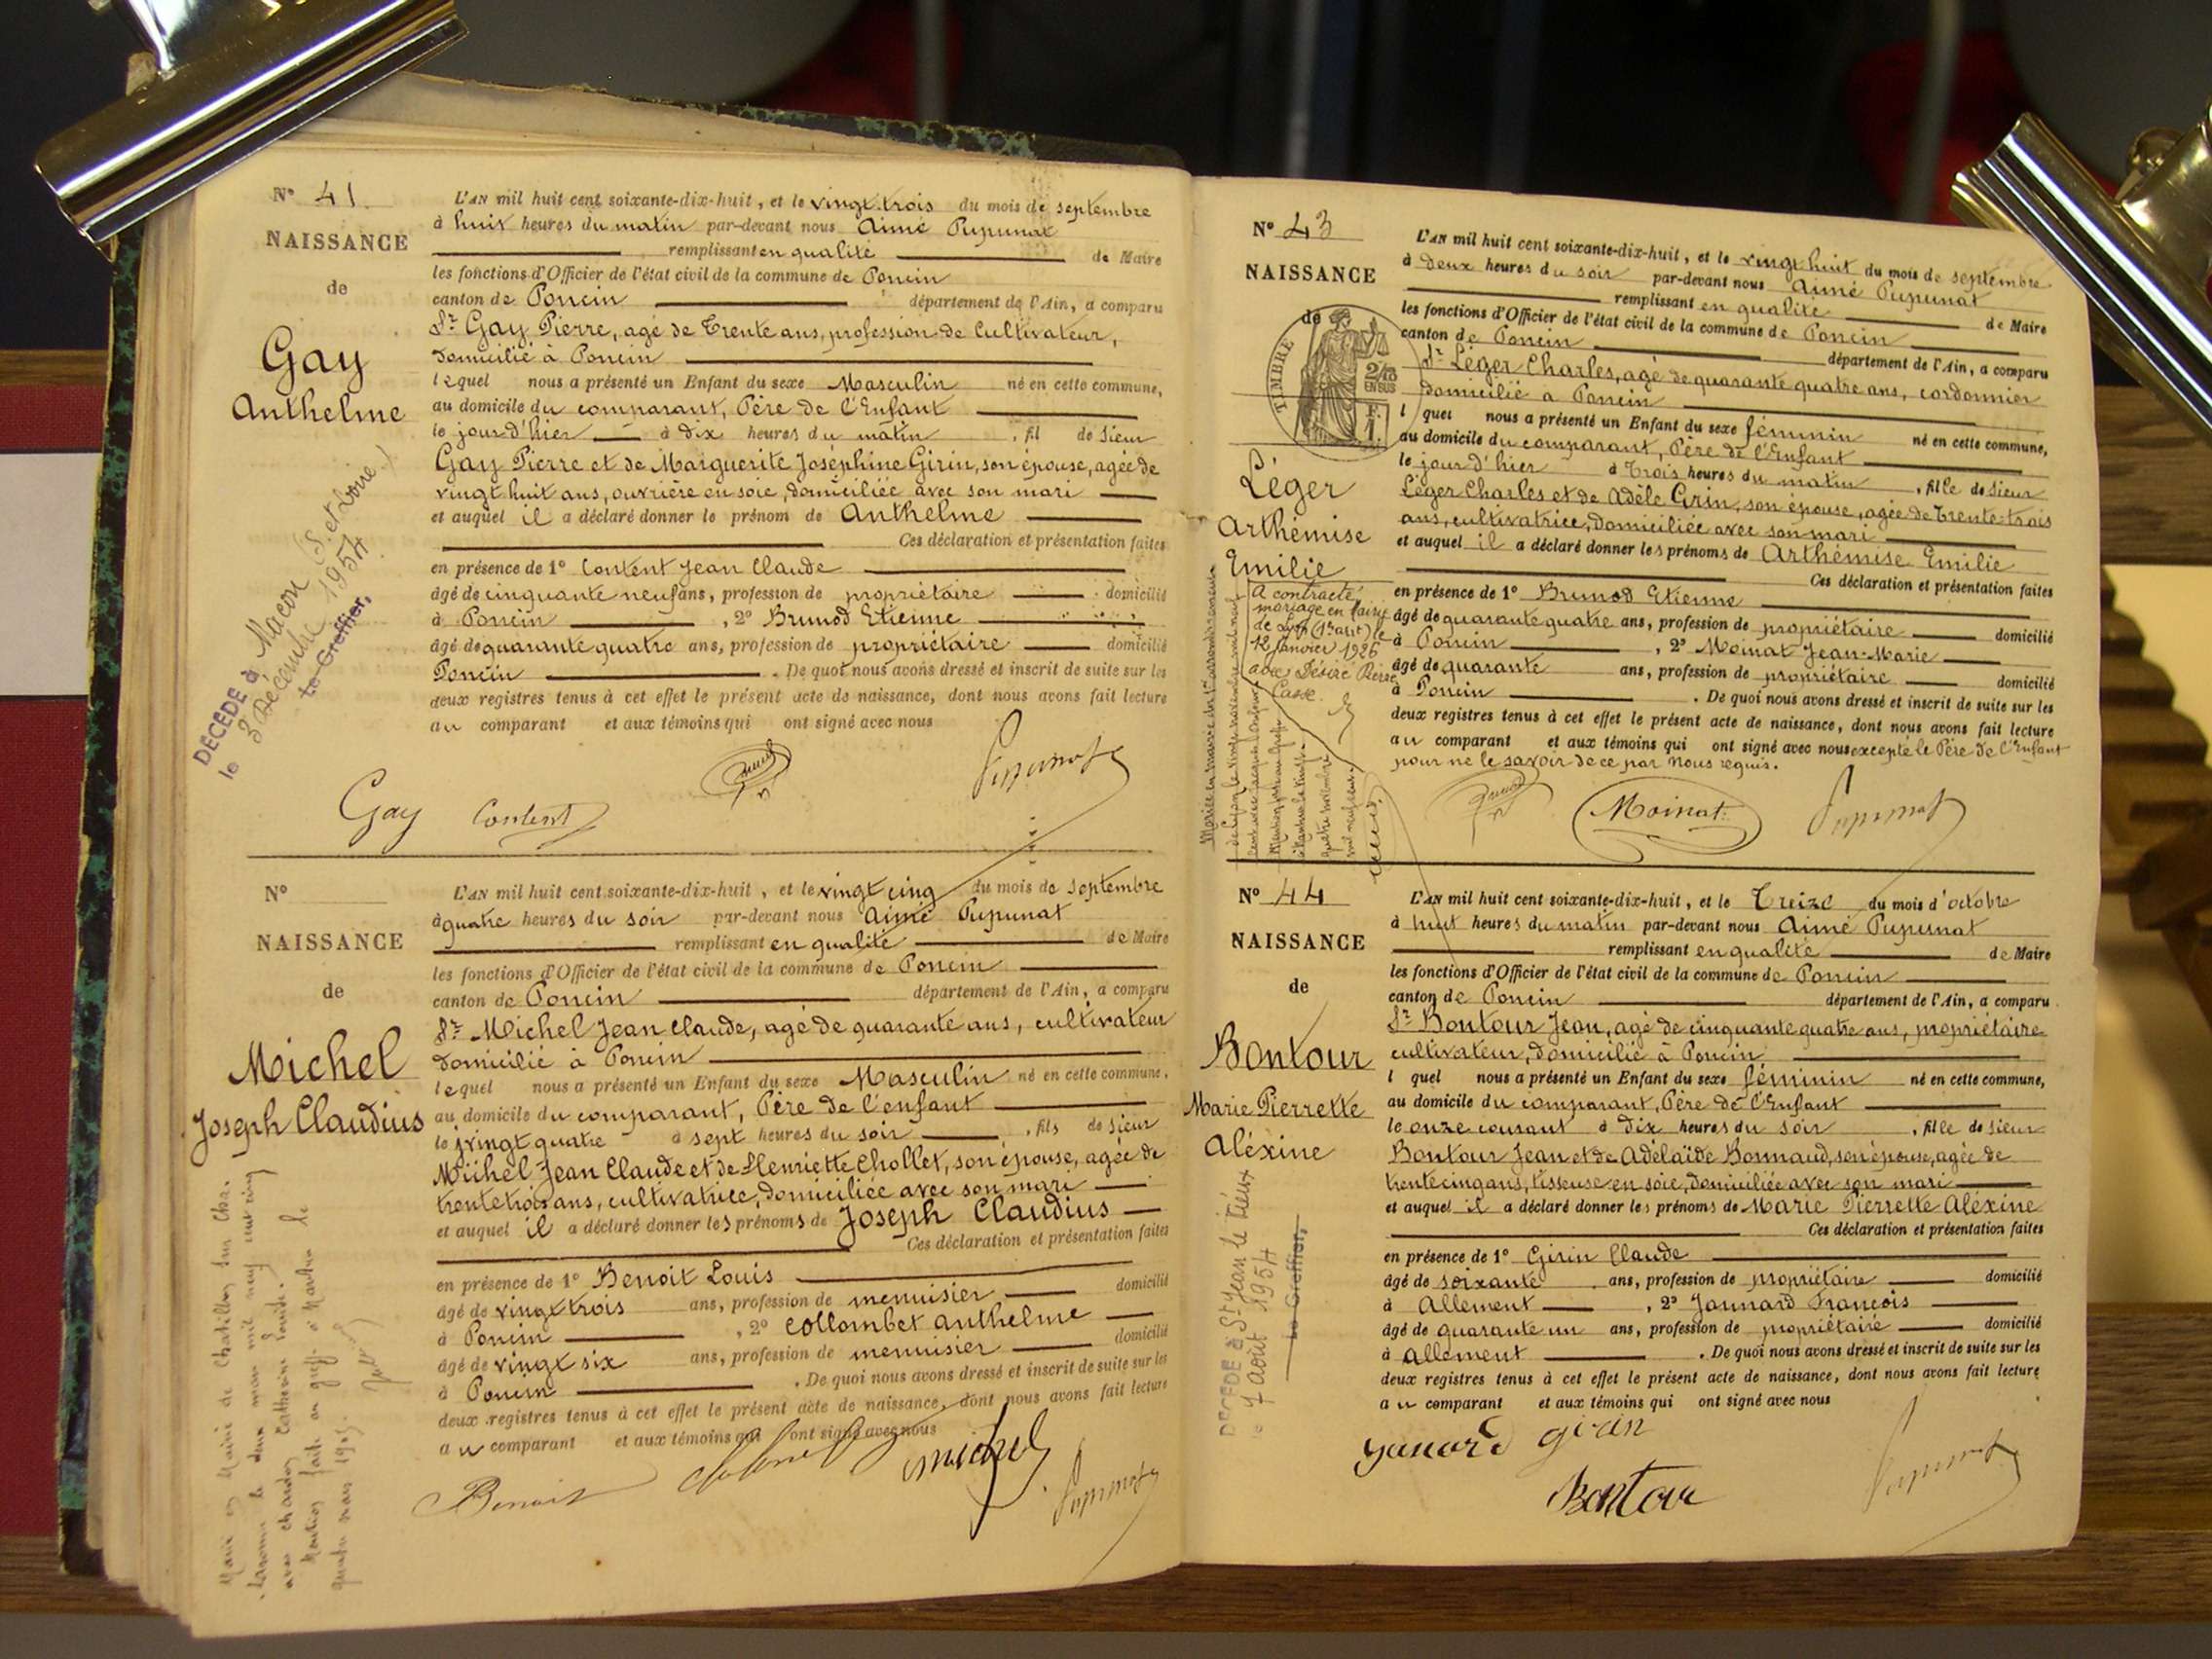 N° 41
NAISSANCE
de
Gay
Anthelme
DÉCÉDÉ à Macon (S. et Loire)
le 3 Décembre 1954
Le Greffier,
L'AN mil huit cent soixante-dix-huit, et le vingt-trois du mois de septembre
à huit heures du matin par-devant nous Aimé Pupunat
remplissant en qualité de Maire
les fonctions d'Officier de l'état civil de la commune de Poncin
canton de Poncin département de l'Ain, a comparu
Sr Gay Pierre, agé de Trente ans, profession de Cultivateur,
domicilié à Poncin
lequel nous a présenté un Enfant du sexe Masculin né en cette commune,
au domicile du comparant, Père de l'Enfant
le jour d'hier à dix heures du matin, fil de sieur
Gay Pierre et de Marguerite Joséphine Girin, son épouse, agée de
vingt huit ans, ouvrière en soie, domiciliée avec son mari
et auquel il a déclaré donner le prénom de Anthelme
Ces déclaration et présentation faites
en présence de 1° Content Jean Claude
âgé de cinquante neuf ans, profession de propriétaire domicilié
à Poncin, 2° Brunod Etienne
âgé de quarante quatre ans, profession de propriétaire domicilié
Poncin. De quoi nous avons dressé et inscrit de suite sur les
deux registres tenus à cet effet le présent acte de naissance, dont nous avons fait lecture
au comparant et aux témoins qui ont signé avec nous
Gay Content Pupunat
N°
NAISSANCE
de
Michel
Joseph Claudius
L'AN mil huit cent soixante-dix-huit, et le vingt cinq du mois de septembre
à quatre heures du soir par-devant nous Aimé Pupunat
remplissant en qualité de Maire
les fonctions d'Officier de l'état civil de la commune de Poncin
canton de Poncin département de l'Ain, a comparu
Sr Michel Jean Claude, agé de quarante ans, cultivateur
domicilié à Poncin
lequel nous a présenté un Enfant du sexe Masculin né en cette commune,
au domicile du comparant, Père de l'enfant
le vingt quatre à sept heures du soir, fils de sieur
Michel Jean Claude et de Henriette Chollet, son épouse, agée de
trente trois ans, cultivatrice, domiciliée avec son mari
et auquel il a déclaré donner les prénoms de Joseph Claudius
Ces déclaration et présentation faites
en présence de 1° Benoit Louis
âgé de vingt trois ans, profession de menuisier domicilié
à Poncin, 2° Collombet Anthelme
âgé de vingt six ans, profession de menuisier domicilié
à Poncin. De quoi nous avons dressé et inscrit de suite sur les
deux registres tenus à cet effet le présent acte de naissance, dont nous avons fait lecture
au comparant et aux témoins qui ont signé avec nous
Benoit Michel Pupunat
N° 43
NAISSANCE
de
TIMBRE
2/10
EN SUS
Léger
Arthémise
Emilie
A contracté
mariage en Mairie
de Lyon (1er arrt) le
12 Janvier 1926
avec Désiré Pierre
Casse.
L'AN mil huit cent soixante-dix-huit, et le vingt huit du mois de septembre
à deux heures du soir par-devant nous Aimé Pupunat
remplissant en qualité de Maire
les fonctions d'Officier de l'état civil de la commune de Poncin
canton de Poncin département de l'Ain, a comparu
Sr Léger Charles, agé de quarante quatre ans, cordonnier
domicilié à Poncin
l quel nous a présenté un Enfant du sexe féminin né en cette commune,
au domicile du comparant, Père de l'Enfant
le jour d'hier à Trois heures du matin, fille de sieur
Léger Charles et de Adèle Girin, son épouse, agée de Trente-trois
ans, cultivatrice, domiciliée avec son mari
et auquel il a déclaré donner les prénoms de Arthémise Emilie
Ces déclaration et présentation faites
en présence de 1° Brunod Etienne
âgé de quarante quatre ans, profession de propriétaire domicilié
à Poncin, 2° Moinat Jean-Marie
âgé de quarante ans, profession de propriétaire domicilié
à Poncin. De quoi nous avons dressé et inscrit de suite sur les
deux registres tenus à cet effet le présent acte de naissance, dont nous avons fait lecture
au comparant et aux témoins qui ont signé avec nous excepté le Père de l'Enfant
pour ne le savoir de ce par nous requis.
Moinat Pupunat
N° 44
NAISSANCE
de
Bontour
Marie Pierrette
Aléxine
DÉCÉDÉ à St Jean le Vieux
le 7 août 1954
Le Greffier,
L'AN mil huit cent soixante-dix-huit, et le Treize du mois d'octobre
à huit heures du matin par-devant nous Aimé Pupunat
remplissant en qualité de Maire
les fonctions d'Officier de l'état civil de la commune de Poncin
canton de Poncin département de l'Ain, a comparu
Sr Bontour Jean, agé de cinquante quatre ans, propriétaire
cultivateur, domicilié à Poncin
l quel nous a présenté un Enfant du sexe féminin né en cette commune,
au domicile du comparant, Père de l'Enfant
le onze courant à dix heures du soir, fille de sieur
Bontour Jean et de Adélaïde Bonnaud, son épouse, agée de
trente cinq ans, tisseuse en soie, domiciliée avec son mari
et auquel il a déclaré donner les prénoms de Marie Pierrette Aléxine
Ces déclaration et présentation faites
en présence de 1° Girin Claude
âgé de soixante ans, profession de propriétaire domicilié
à Allement, 2° Jannard François
âgé de quarante un ans, profession de propriétaire domicilié
à Allement. De quoi nous avons dressé et inscrit de suite sur les
deux registres tenus à cet effet le présent acte de naissance, dont nous avons fait lecture
au comparant et aux témoins qui ont signé avec nous
girin
Bontour Pupunat